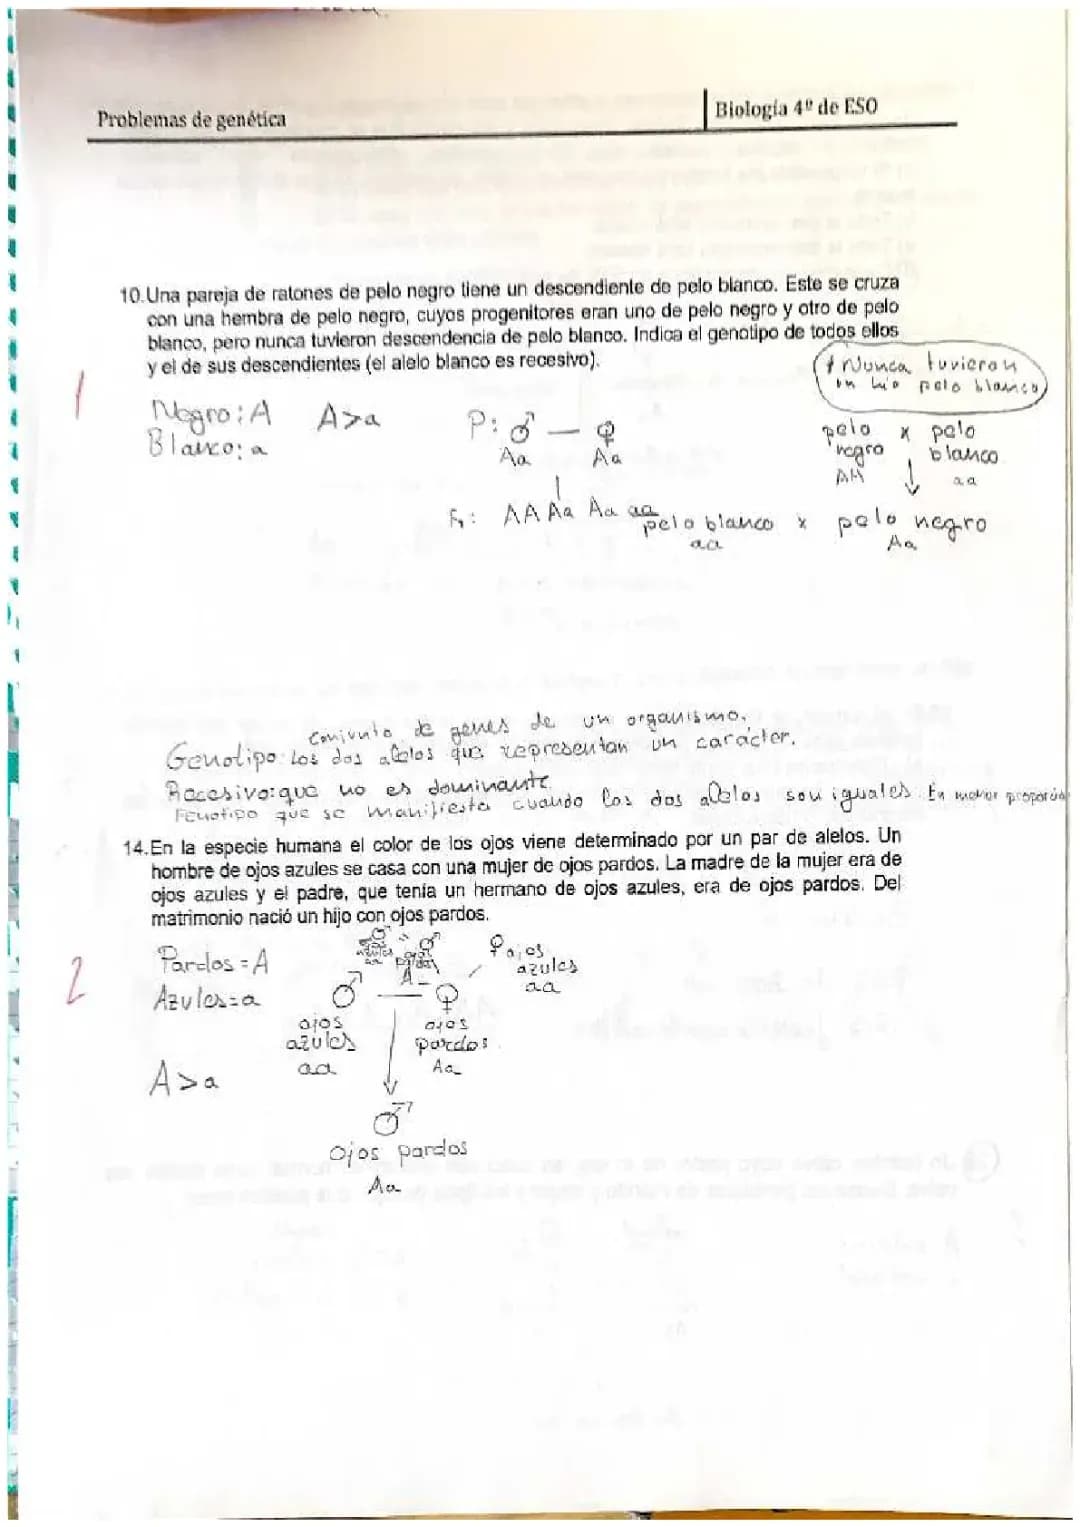 Problemas de genética
Biología 4º de ESO
10. Una pareja de ratones de pelo negro tiene un descendiente de pelo blanco. Este se cruza
con una hembra de pelo negro, cuyos progenitores eran uno de pelo negro y otro de pelo
blanco, pero nunca tuvieron descendencia de pelo blanco. Indica el genotipo de todos ellos
y el de sus descendientes (el alelo blanco es recesivo).
* Nunca tuvieron
un hijo pelo blanco
1
Negro: A A>a
Blanco: a
P: ♂ — ♀
Aa Aa
F₁: AA Aa Aa aa
pelo negro x pelo blanco
AA aa
pelo blanco x pelo negro
aa Aa
conjunto de genes de un organismo.
Genotipo: Los dos alelos que representan un carácter.
Recesivo: que no es dominante
Fenotipo que se manifiesta cuando los dos alelos son iguales. En menor proporción
14. En la especie humana el color de los ojos viene determinado por un par de alelos. Un
hombre de ojos azules se casa con una mujer de ojos pardos. La madre de la mujer era de
ojos azules y el padre, que tenía un hermano de ojos azules, era de ojos pardos. Del
matrimonio nació un hijo con ojos pardos.
2
Pardos = A
Azules = a
A>a
♂ azules aa
♂ ojos pardos A_
♀ ojos azules aa
♂ — ♀
ojos azules aa
ojos pardos Aa
♂
Ojos pardos
Aa